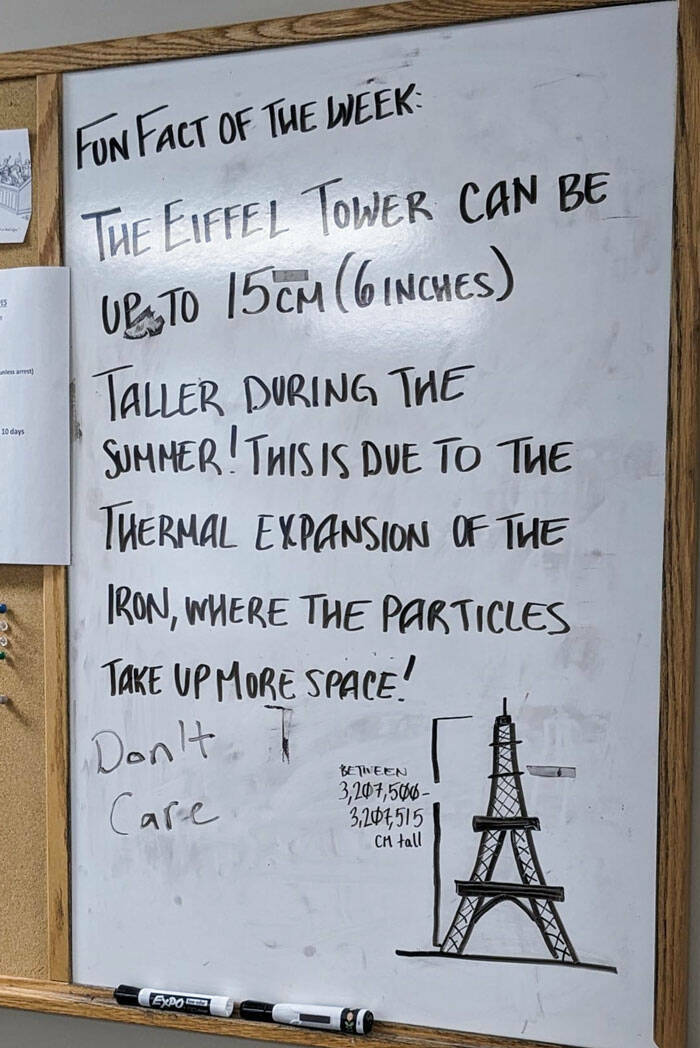 FUN FACT OF THE WEEK:
THE EIFFEL TOWER CAN BE
UP TO 15CM (6 INCHES)
TALLER DURING THE
SUMMER! THIS IS DUE TO THE
THERMAL EXPANSION OF THE
IRON, WHERE THE PARTICLES
TAKE UP MORE SPACE!
Don't
Care
BETWEEN
3,207,500-
3,207,515
CM tall
unless arrest)
10 days
EXPO